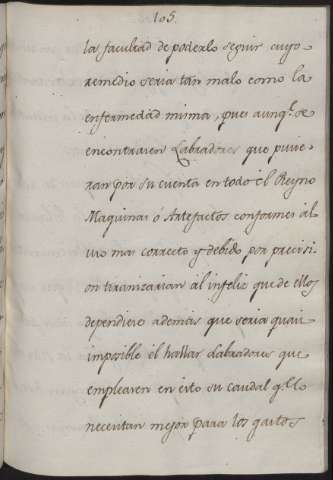 105.
la facultad de poderlo seguir cuyo
remedio seria tan malo como la
enfermedad misma, pues aunq.e se
encontrasen Labradores que pusie-
ran por su cuenta en todo el Reyno
Maquinas ó Artefactos conformes al
uso mas correcto y debido por precisi-
on tiranizarian al infeliz que de ellos
dependiere ademas que seria quasi
imposible el hallar Labradores que
empleasen en esto su caudal q.e lo
necesitan mejor para los gastos